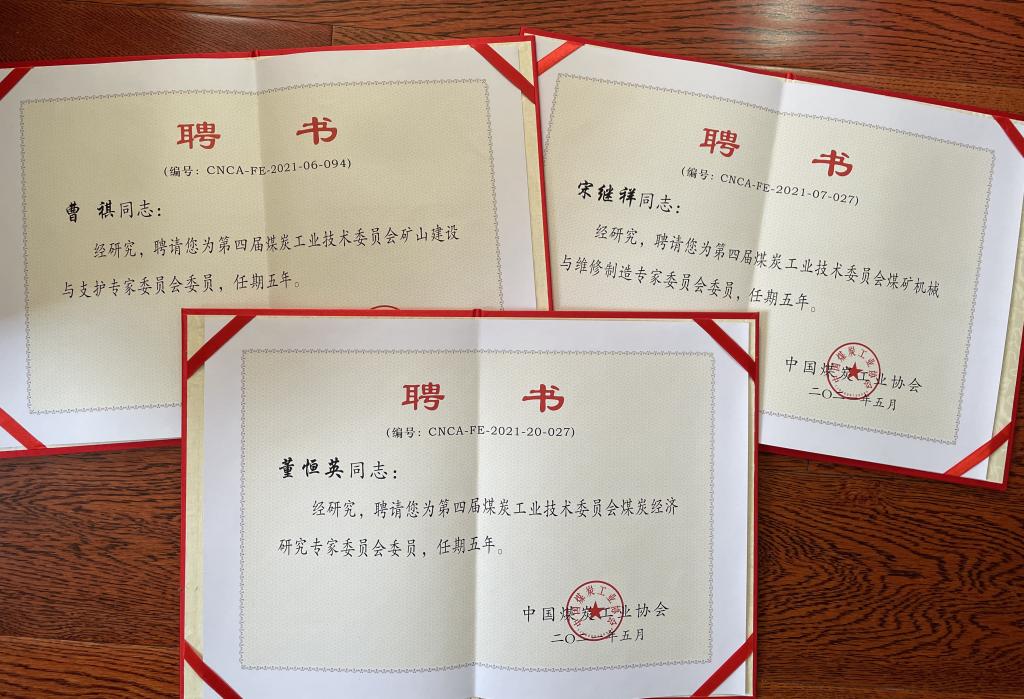 聘 书
(编号: CNCA-FE-2021-06-094)
曹 祺同志:
经研究，聘请您为第四届煤炭工业技术委员会矿山建设
与支护专家委员会委员，任期五年。
聘 书
(编号: CNCA-FE-2021-07-027)
宋继祥同志:
经研究，聘请您为第四届煤炭工业技术委员会煤矿机械
与维修制造专家委员会委员，任期五年。
中国煤炭工业协会
二〇二一年五月
聘 书
(编号: CNCA-FE-2021-20-027)
董恒英同志:
经研究，聘请您为第四届煤炭工业技术委员会煤炭经济
研究专家委员会委员，任期五年。
中国煤炭工业协会
二〇二一年五月